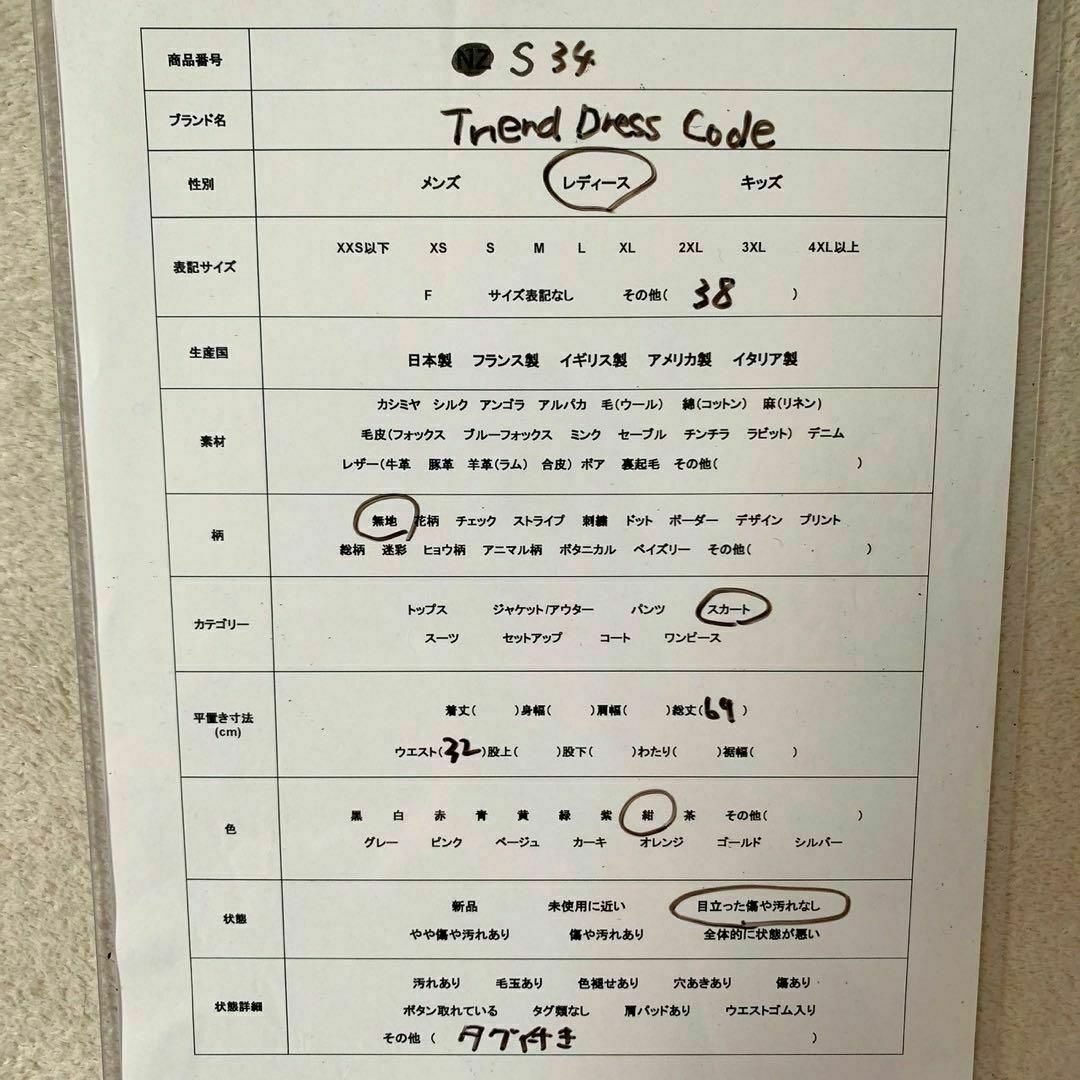 商品番号 NZ S 34
ブランド名 Trend Dress Code
性別 メンズ レディース キッズ
表記サイズ XXS以下 XS S M L XL 2XL 3XL 4XL以上
F サイズ表記なし その他( 38 )
生産国 日本製 フランス製 イギリス製 アメリカ製 イタリア製
素材 カシミヤ シルク アンゴラ アルパカ 毛(ウール) 綿(コットン) 麻(リネン)
毛皮(フォックス ブルーフォックス ミンク セーブル チンチラ ラビット) デニム
レザー(牛革 豚革 羊革(ラム) 合皮) ボア 裏起毛 その他( )
柄 無地 花柄 チェック ストライプ 刺繍 ドット ボーダー デザイン プリント
総柄 迷彩 ヒョウ柄 アニマル柄 ボタニカル ペイズリー その他( )
カテゴリー トップス ジャケット/アウター パンツ スカート
スーツ セットアップ コート ワンピース
平置き寸法 (cm) 着丈( )身幅( )肩幅( )総丈(69 )
ウエスト(32)股上( )股下( )わたり( )裾幅( )
色 黒 白 赤 青 黄 緑 紫 紺 茶 その他( )
グレー ピンク ベージュ カーキ オレンジ ゴールド シルバー
状態 新品 未使用に近い 目立った傷や汚れなし
やや傷や汚れあり 傷や汚れあり 全体的に状態が悪い
状態詳細 汚れあり 毛玉あり 色褪せあり 穴あきあり 傷あり
ボタン取れている タグ類なし 肩パッドあり ウエストゴム入り
その他 ( タグ付き )